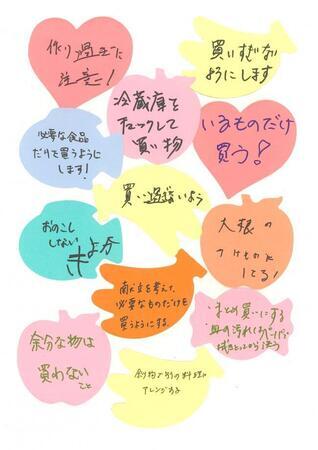 作り過ぎに
注意!
買いすぎない
ようにします
冷蔵庫を
チェックして
買い物
いるものだけ
買う!
必要な食品
だけを買うように
します!
買い過ぎないよう
おのこし
しない
きよか
大根の
つけものに
してる!
献立を考えて、
必要なものだけを
買うようにする。
まとめ買いにする
皿の汚れは
ふきとってから洗う
余分な物は
買わない
こと
別の料理に
アレンジする